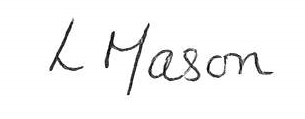 L Mason